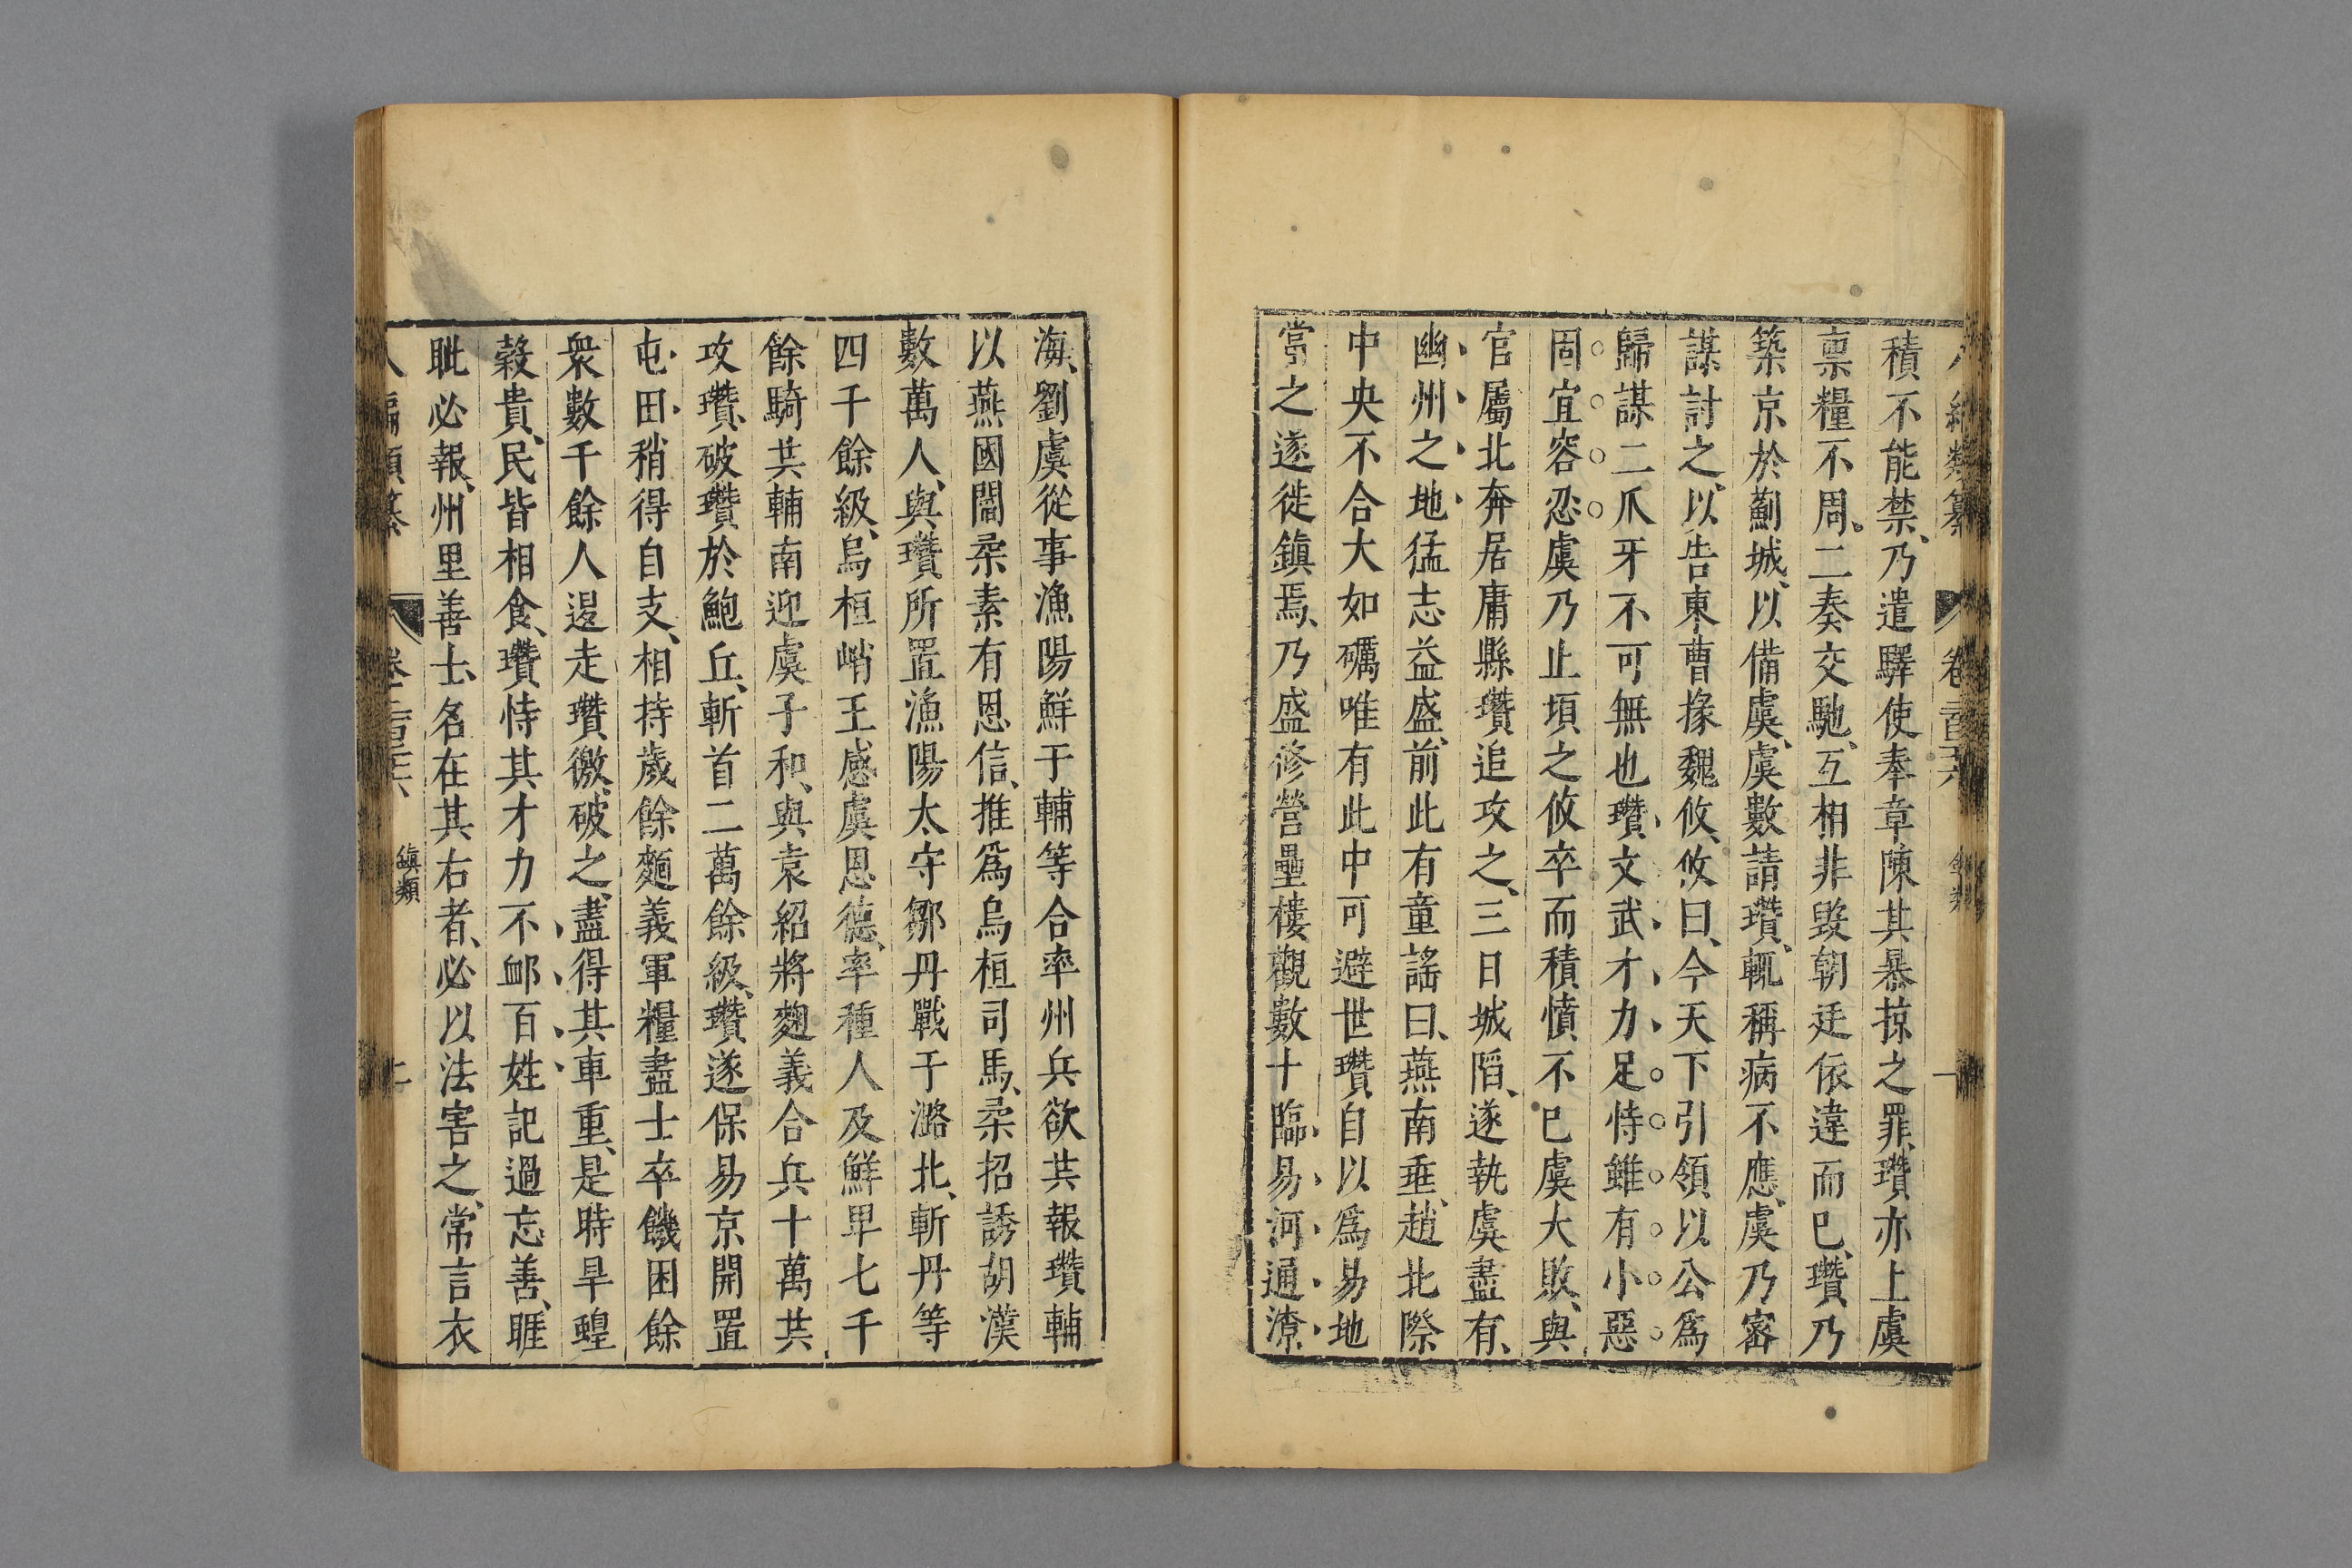 積不能禁、乃遣驛使奉章陳其暴掠之罪、瓚亦上虞
禀糧不周。二奏交馳、互相非毀朝廷依違而已、瓚乃
築京於薊城、以備虞、虞數請瓚、輒稱病不應、虞乃密
謀討之、以告東曹掾魏攸、攸曰、今天下引領以公爲
歸謀二爪牙不可無也瓚、文武才力足恃雖有小惡
固宜容忍虞乃止頃之攸卒而積憤不已虞大敗、與
官屬北奔居庸縣瓚追攻之、三日城陷、遂執虞盡有、
幽州之地猛志益盛、前此有童謠曰、燕南垂、趙北際
中央不合大如礪唯有此中可避世瓚自以爲易地
當之遂徙鎮焉、乃盛修營壘樓觀數十臨易河通潦
海、劉虞從事漁陽鮮于輔等合率州兵欲共報瓚輔
以燕國閻柔素有恩信、推爲烏桓司馬、柔招誘胡漢
數萬人、與瓚所置漁陽太守鄒丹戰于潞北、斬丹等
四千餘級、烏桓峭王感虞恩德、率種人及鮮卑七千
餘騎共輔南迎虞子和、與袁紹將麴義合兵十萬共
攻瓚、破瓚於鮑丘、斬首二萬餘級、瓚遂保易京開置
屯田稍得自支、相持歲餘麴義軍糧盡士卒饑困餘
衆數千餘人遑走瓚徼、破之、盡得其車重、是時旱蝗
穀貴、民皆相食、瓚恃其才力不卹百姓記過忘善、睚
眦必報、州里善士、名在其右者、必以法害之、常言衣
編類纂 卷二百三六、 鎮類 二